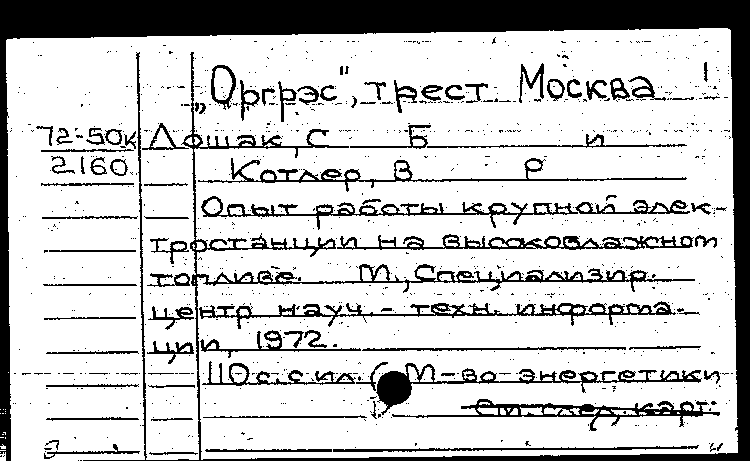 „Оргрэс", трест Москва
72-50к Лошак, С Б и
2160 Котлер, В Р
Опыт работы крупной элек-
тростанции на высоковлажном
топливе. М., Специализир.
центр науч.- техн. информа-
ции, 1972.
110 с. с ил. ( М-во энергетики
см. след. карт.